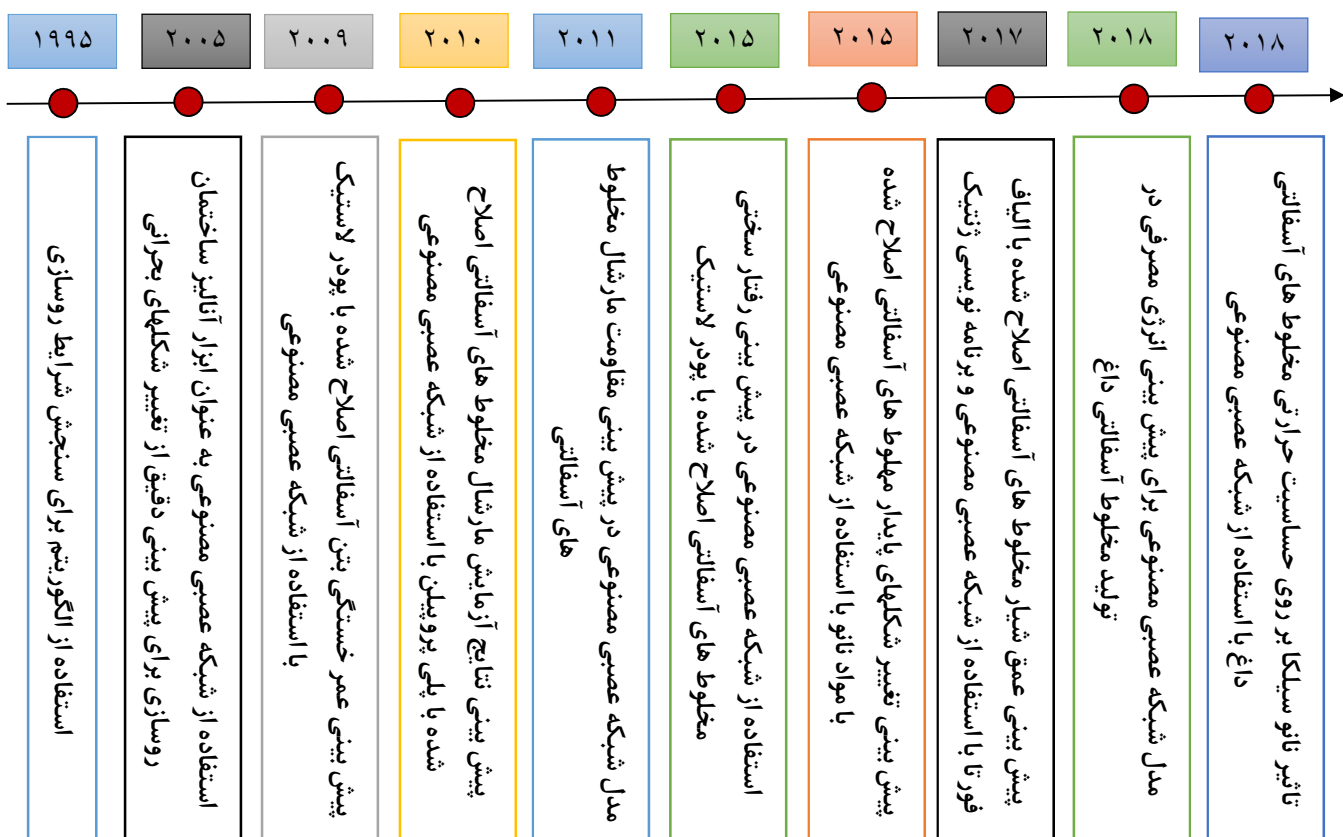 ۱۹۹۵
۲۰۰۵
۲۰۰۹
۲۰۱۰
۲۰۱۱
۲۰۱۵
۲۰۱۵
۲۰۱۷
۲۰۱۸
۲۰۱۸
استفاده از الگوریتم برای سنجش شرایط روسازی
استفاده از شبکه عصبی مصنوعی به عنوان ابزار آنالیز ساختمان
روسازی برای پیش بینی دقیق از تغییر شکلهای بحرانی
پیش بینی عمر خستگی بتن آسفالتی اصلاح شده با پودر لاستیک
با استفاده از شبکه عصبی مصنوعی
پیش بینی نتایج آزمایش مارشال مخلوط های آسفالتی اصلاح
شده با پلی پروپیلن با استفاده از شبکه عصبی مصنوعی
مدل شبکه عصبی مصنوعی در پیش بینی مقاومت مارشال مخلوط
های آسفالتی
استفاده از شبکه عصبی مصنوعی در پیش بینی رفتار سختی
مخلوط های آسفالتی اصلاح شده با پودر لاستیک
پیش بینی تغییر شکلهای پایدار مهلوط های آسفالتی اصلاح شده
با مواد نانو با استفاده از شبکه عصبی مصنوعی
پیش بینی عمق شیار مخلوط های آسفالتی اصلاح شده با الیاف
فورتا با استفاده از شبکه عصبی مصنوعی و برنامه نویسی ژنتیک
مدل شبکه عصبی مصنوعی برای پیش بینی انرژی مصرفی در
تولید مخلوط آسفالتی داغ
تاثیر نانو سیلکا بر روی حساسیت حرارتی مخلوط های آسفالتی
داغ با استفاده از شبکه عصبی مصنوعی